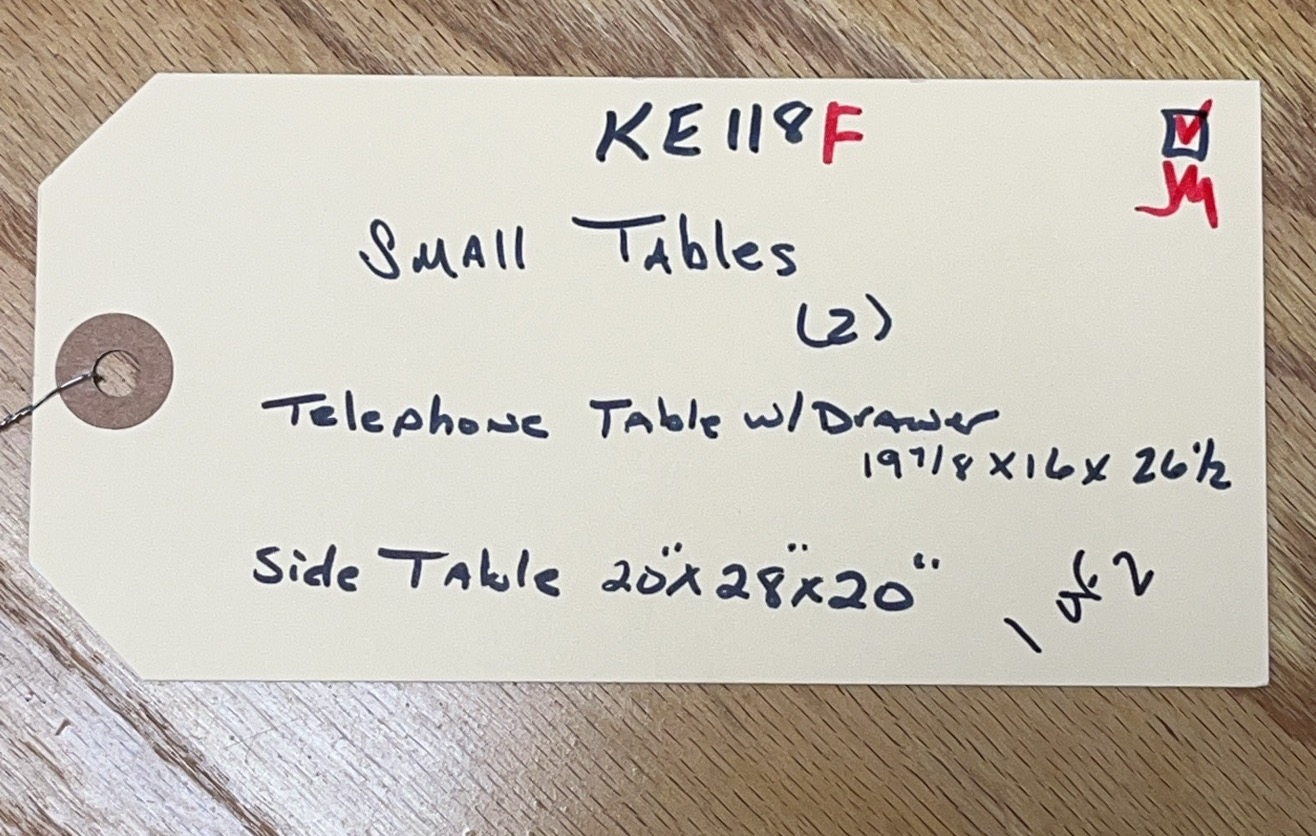 KE118F
JM
Small Tables
(2)
Telephone Table w/Drawer
19 7/8 x 16 x 26 1/2
Side Table 20" x 28" x 20"
1 of 2